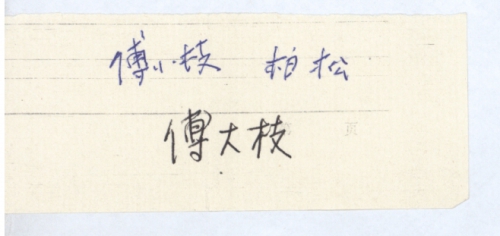 傅小枝 柏松
傅大枝
页